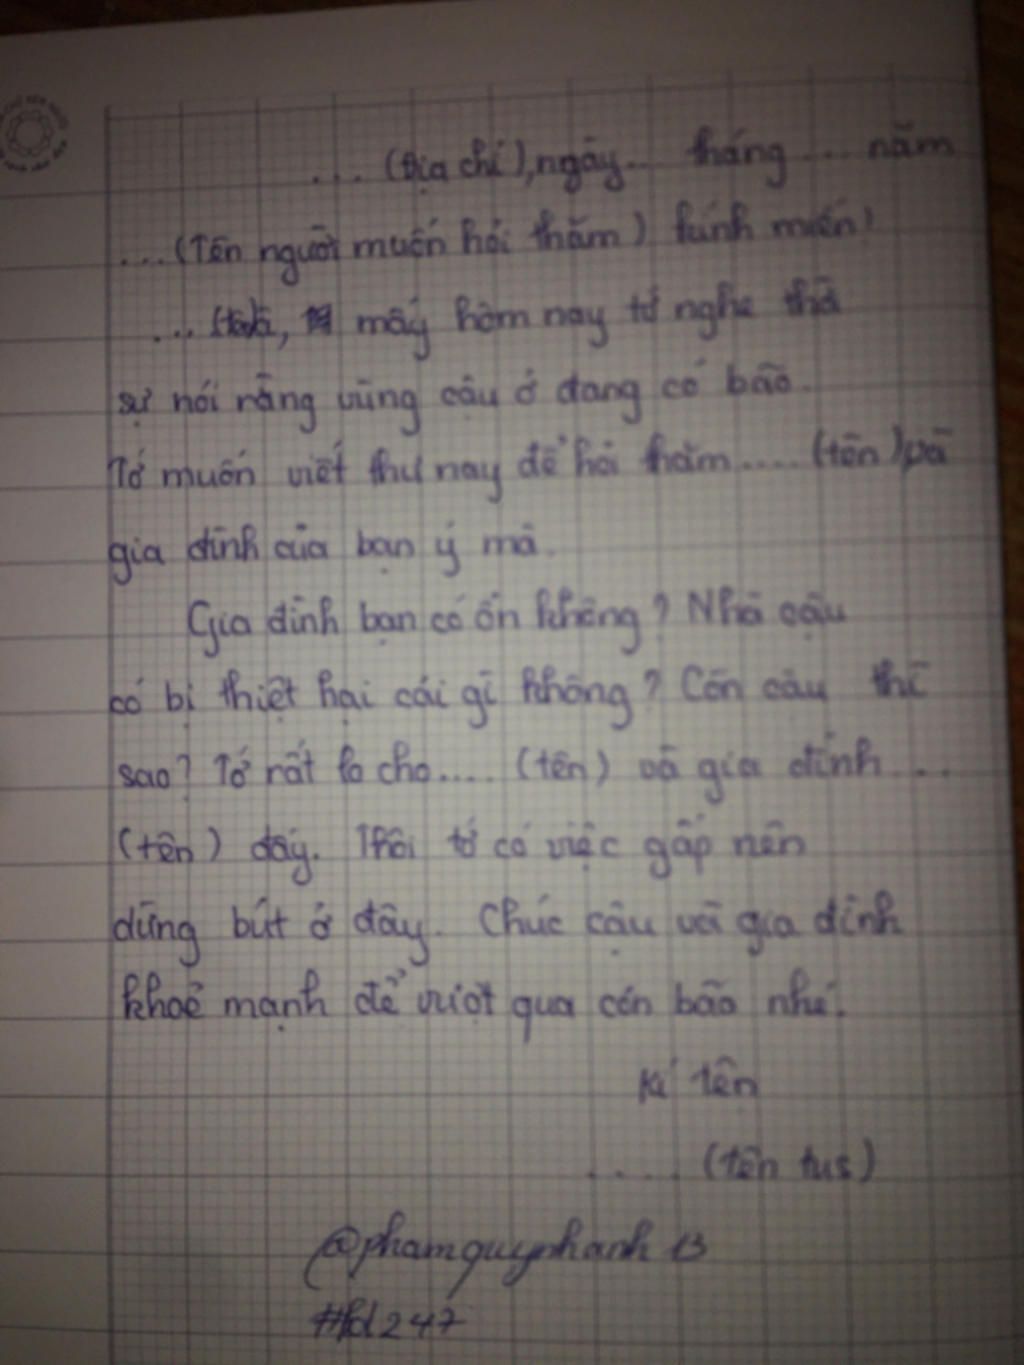 ... (Địa chỉ), ngày... tháng ... năm
.... (Tên người muốn hỏi thăm) kính mến!
... mấy hôm nay tớ nghe thờ
sự nói rằng vùng cậu ở đang có bão.
Tớ muốn viết thư nay để hỏi thăm.... (tên) và
gia đình của bạn ý mà.
Gia đình bạn có ổn không? Nhà cậu
có bị thiệt hại cái gì không? Còn cậu thì
sao? Tớ rất lo cho.... (tên) và gia đình ...
(tên) đấy. Thôi tớ có việc gấp nên
dừng bút ở đây. Chúc cậu và gia đình
khoẻ mạnh để vượt qua cơn bão nhé.
Kí tên
..... (tên tus)
@phamquynhanh13
247